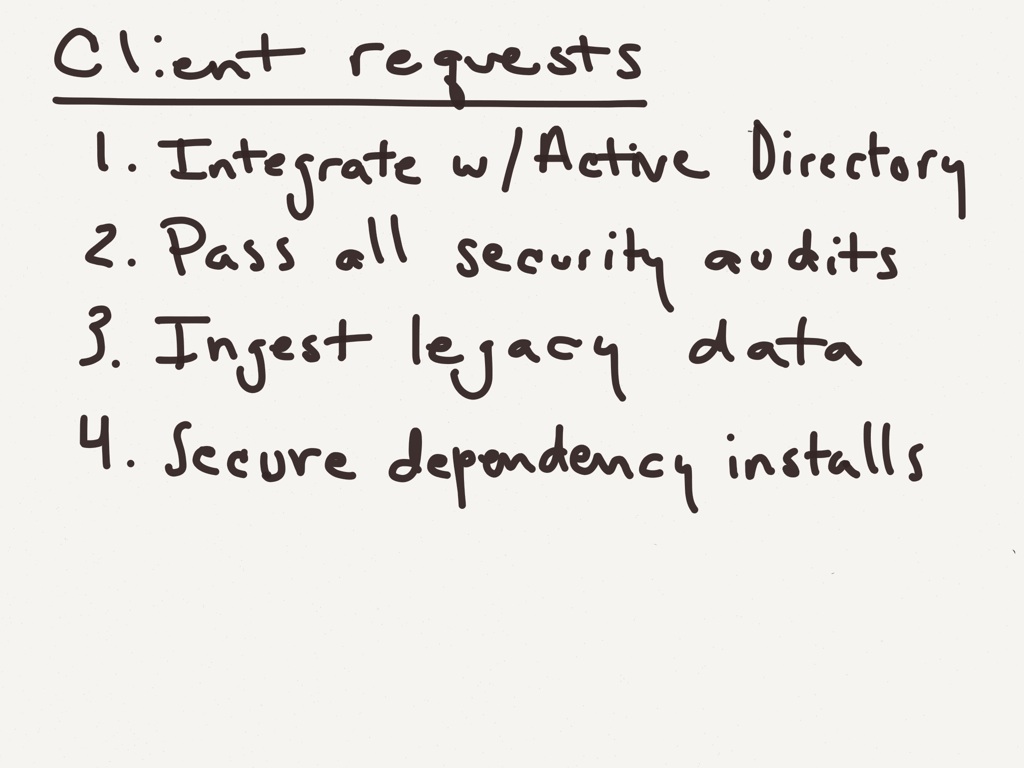 Client requests
1. Integrate w/Active Directory
2. Pass all security audits
3. Ingest legacy data
4. Secure dependency installs